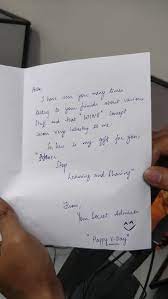 I have seen you many times
talking to your friends about various
stuff and that concept
seem very interesting to me.
So here is my gift for you,
Stop
Learning and Sharing"
From,
Your Secret Admirer
"Happy V-Day"